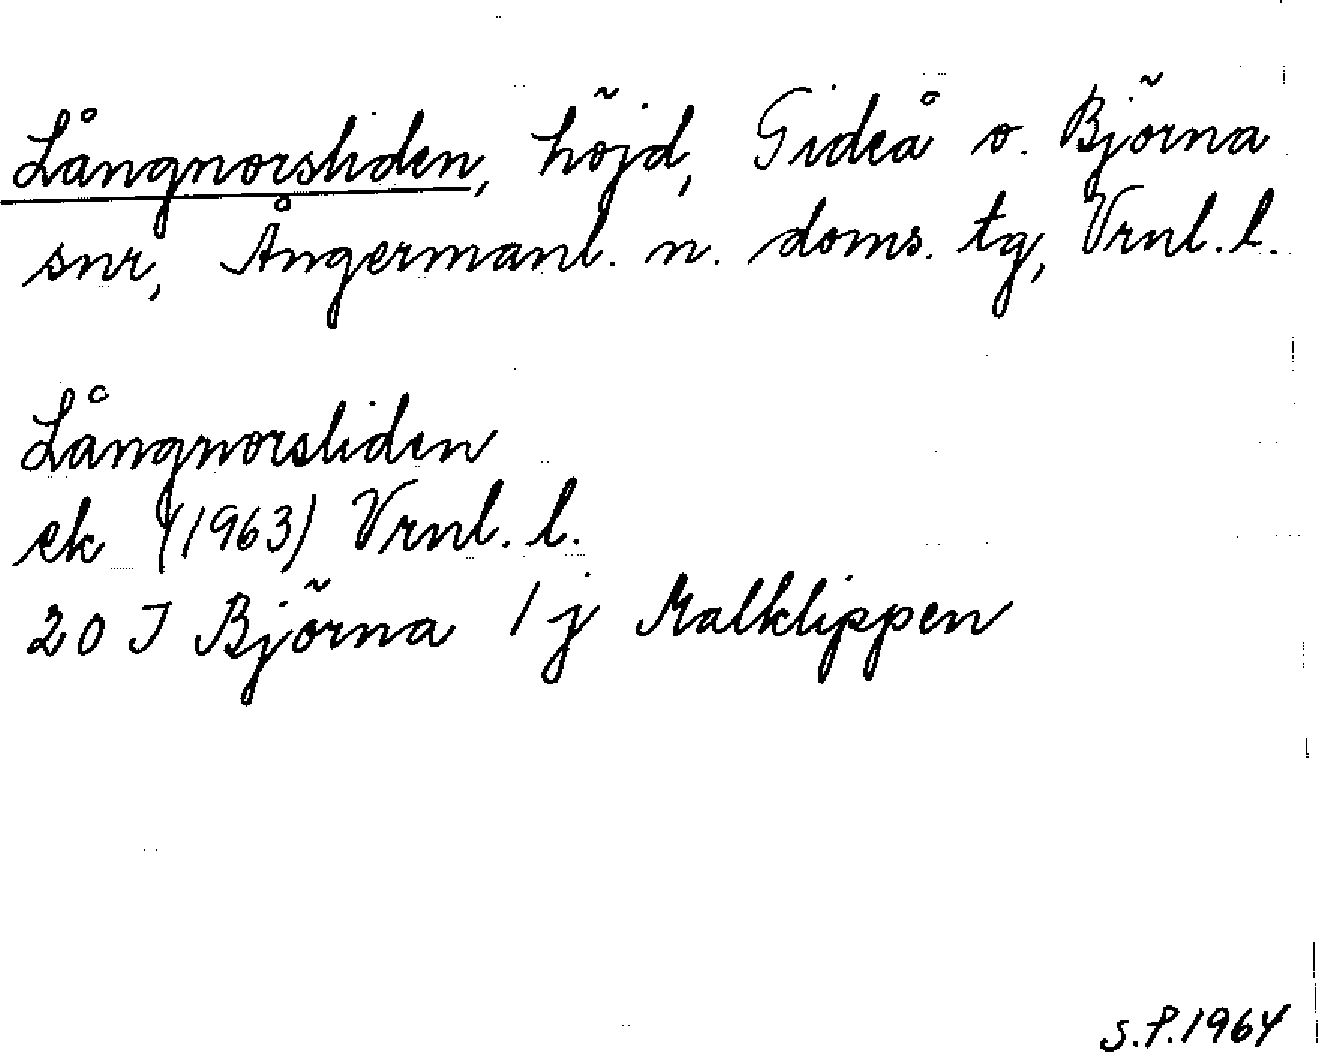 Långnorsliden, höjd, Gideå o. Björna
snr, Ångermanl. n. doms. tg, Vrnl. l.
Långnorsliden
ek (1963) Vrnl. l.
20 I Björna 1 j Malklippen
S.P. 1964